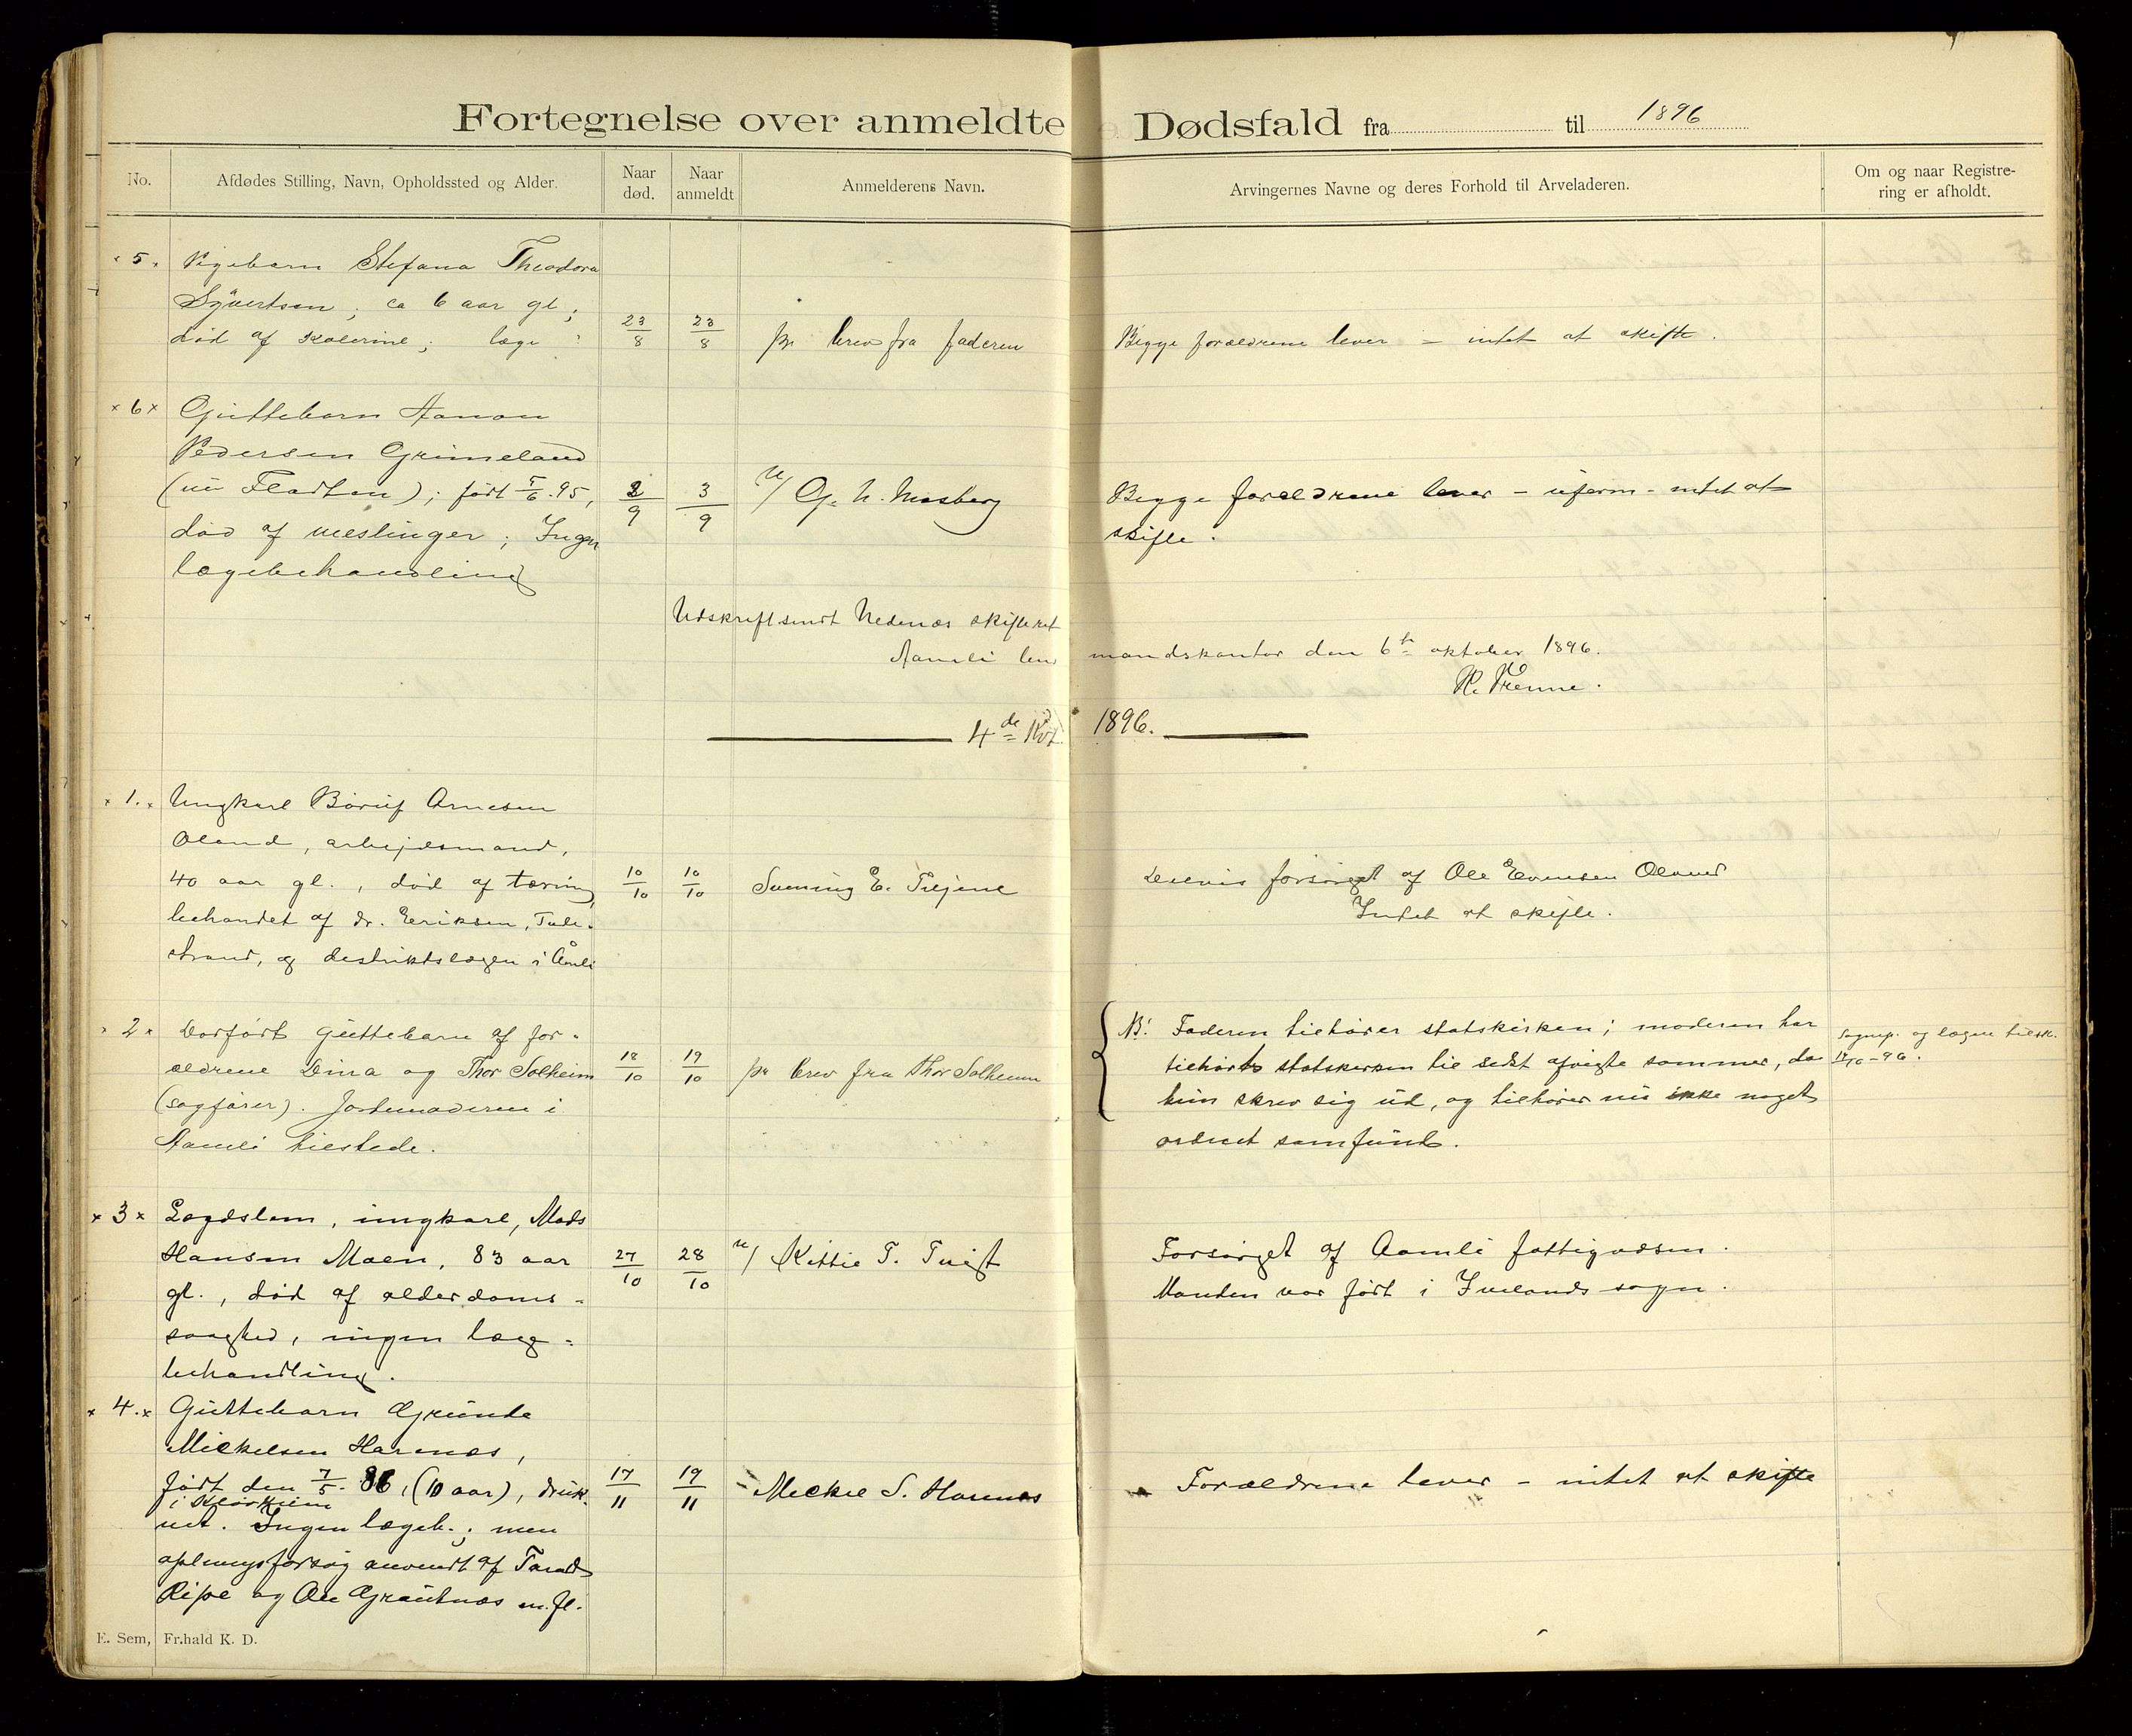 Fortegnelse over anmeldte Dødsfald fra til 1896
No. Afdødes Stilling, Navn, Opholdssted og Alder. Naar død. Naar anmeldt Anmelderens Navn. Arvingernes Navne og deres Forhold til Arveladeren. Om og naar Registrering er afholdt.
× 5 × Pigebarn Stefana Theodora
Syvertsen; ca 6 aar gl;
død af Kolerine; læge 23/8 23/8 pr brev fra faderen Begge forældrene lever – intet at skifte.
× 6 × Guttebarn Aanon
Pedersen Grimeland
(nu Fladten); født 5/6.95, 2/9 3/9 v/ G. N. Mosberg Begge forældrene lever – uform – intet at
død af meslinger; Ingen skifte.
lægebehandling
Udskrift sendt Nedenæs skifteret
Aamli lensmandskontor den 6te oktober 1896.
4de Kvt. 1896.
× 1. × Ungkarl Børuf Arnesen
Øland, arbejdsmand,
40 aar gl., død af tæring, 10/10 10/10 Sveinung E. Tvejene Delvis forsørget af Ole Evensen Øland
behandlet af dr. Eriksen, Tvede- Intet at skifte.
strand, og destriktslægen i Åmli
× 2 × Dødfødt guttebarn af for-
ældrene Dina og Thor Solheim 18/10 19/10 pr brev fra Thor Solheim
(sagfører). Jordemoderen i
Aamli tilstede.
NB! Faderen tilhører statskirken; moderen har
tilhørt statskirken til sidst afvigte sommer, da
hun skrev sig ud, og tilhører nu ikke noget
ordnet samfund.
Sognep. og lægen tilsk.
19/10-96.
× 3 × Lægdslem, ungkarl, Mads
Hansen Moen, 83 aar 27/10 28/10 v/ Kittil T. Tveit Forsørget af Aamli fattigvæsen.
gl., død af alderdoms- Manden var født i Ivelands sogn.
svaghed, ingen læge-
behandling.
× 4. × Guttebarn Gunde
Mickelsen Harenæs,
født den 7/5. 86, (10 aar), druk- 17/11 19/11 Mickel S. Harenæs Forældrene lever – intet at skifte
net. Ingen lægeb.; men
oplivningsforsøg anvendt af Tarald
Ripe og Ole Grautnæs m.fl.
E. Sem, Fr.hald K. D.